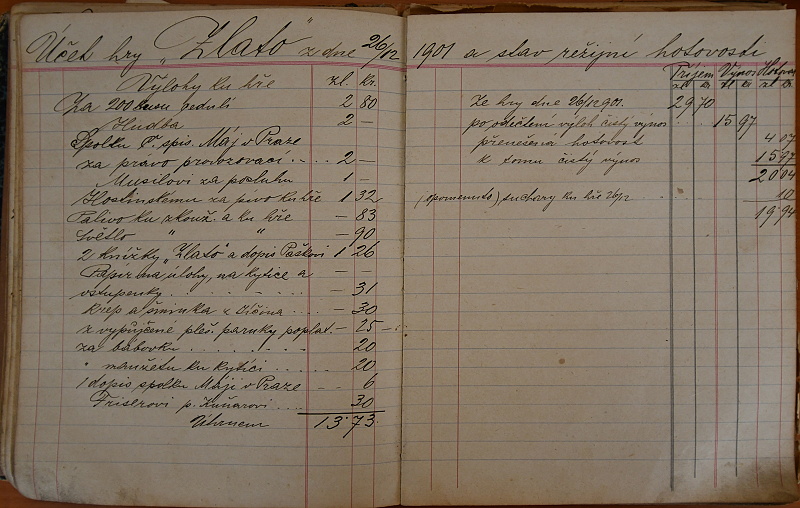 Účet hry „Zlato" z dne 26/12 1901 a stav režijní hotovosti
Výlohy ku hře zl. kr.
Za 200 kusů cedulí 2 80
Hudba 2 —
Spolku č. spis. Máj v Praze
za právo provozovací 2 —
Musilovi za posluhu 1 —
Hostinskému za pivo ku hře 1 32
Palivo ku zkouš. a ku hře — 83
Světlo " " — 90
2 knížky „Zlato" a dopis Paškovi 1 26
Papír na úlohy, na kytice a — —
vstupenky — 31
krep a šminka z Jičína — 30
z vypůjčené pleš. paruky poplat. — 25
za bábovku 20
" manžetu ku kytici 20
1 dopis spolku Máji v Praze 6
Friserovi p. 30
Úhrnem 13 73
Příjem Výnos Hotovost
zl kr zl kr zl kr
Ze hry dne 26/12 1901. 29 70
po odečtení výloh čistý výnos 15 97
přenesená hotovost 4 07
k tomu čistý výnos 15 97
20 04
(opomenuto) suchary ku hře 26/12 10
19 94